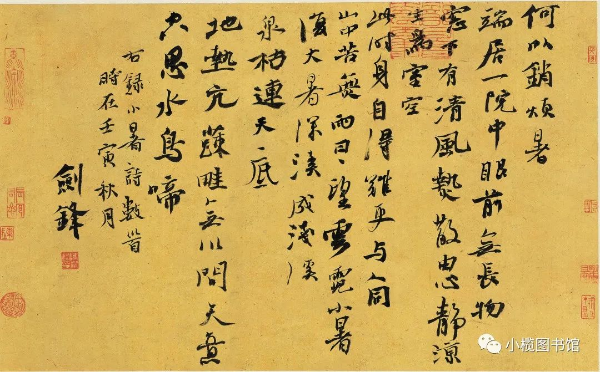 何以銷煩暑
端居一院中眼前無長物
窓下有清風熱散由心靜涼
生為室空
此時身自得難更与人同
山中苦無雨日日望雲霓小暑
復大暑深溪成淺溪
泉枯連底
地熱亢蔬畦無以問天意
思水鳥啼
右錄小暑詩數首
時在壬寅秋月
劍鋒
小榄图书馆